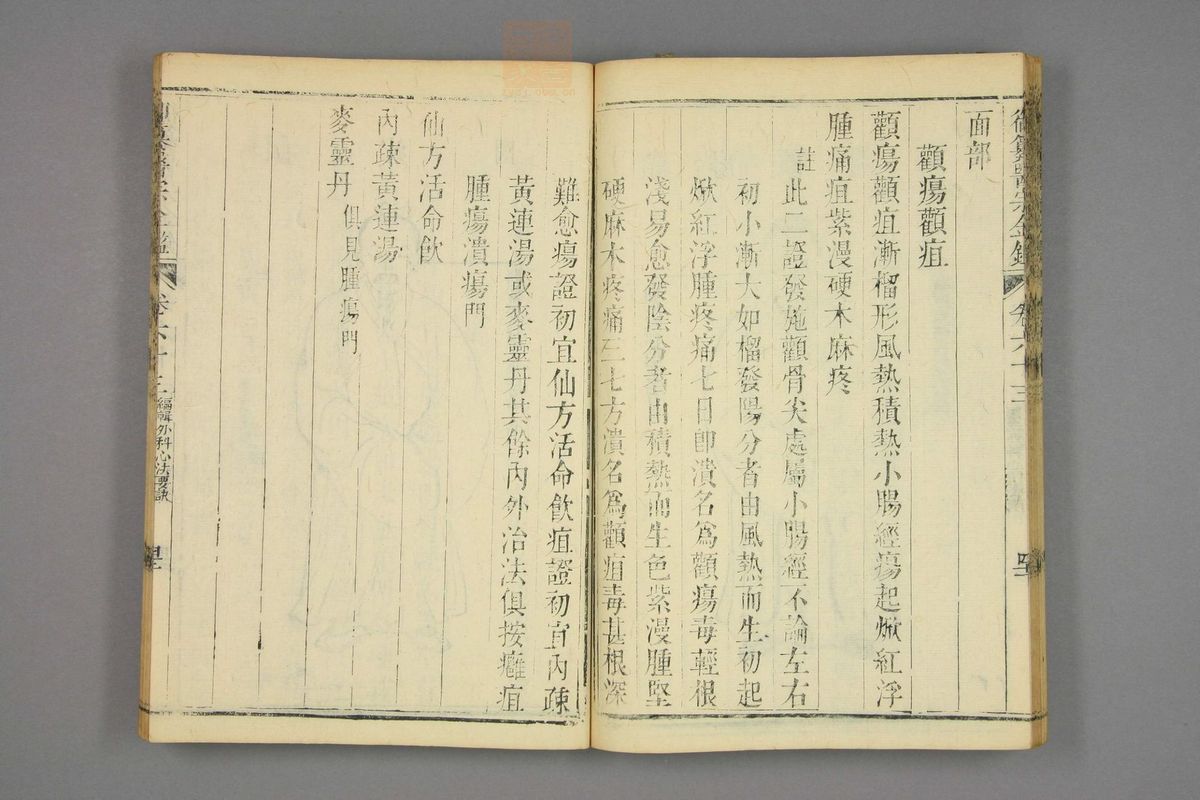 面部
顴瘍顴疽
顴瘍顴疽漸榴形風熱積熱小腸經瘍起焮紅浮
腫痛疽紫漫硬木麻疼
註此二證發於顴骨尖處屬小腸經不論左右
初小漸大如榴發陽分者由風熱而生初起
焮紅浮腫疼痛七日卽潰名爲顴瘍毒輕根
淺易愈發陰分者由積熱而生色紫漫腫堅
硬麻木疼痛三七方潰名爲顴疽毒甚根深
難愈瘍證初宜仙方活命飮疽證初宜內疎
黃連湯或麥靈丹其餘內外治法俱按癰疽
腫瘍潰瘍門
仙方活命飮
內疎黃連湯
麥靈丹俱見腫瘍門
卷六十三
編輯外科心法要訣